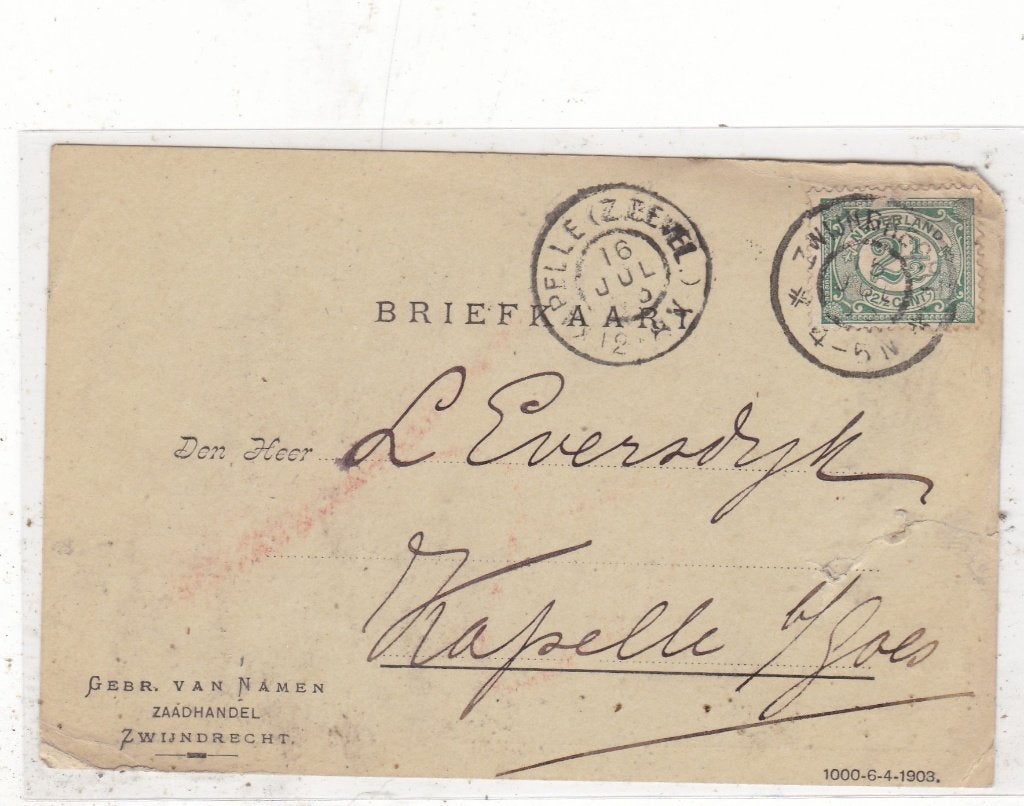 KAPELLE (Z. BEVEL.)
16
JUL
12
ZWIJNDR
NEDERLAND
2½
(2½ CENT)
4-5 N
BRIEFKAART
Den Heer L Eversdyk
Kapelle b/Goes
GEBR. VAN NAMEN
ZAADHANDEL
ZWIJNDRECHT.
1000-6-4-1903.